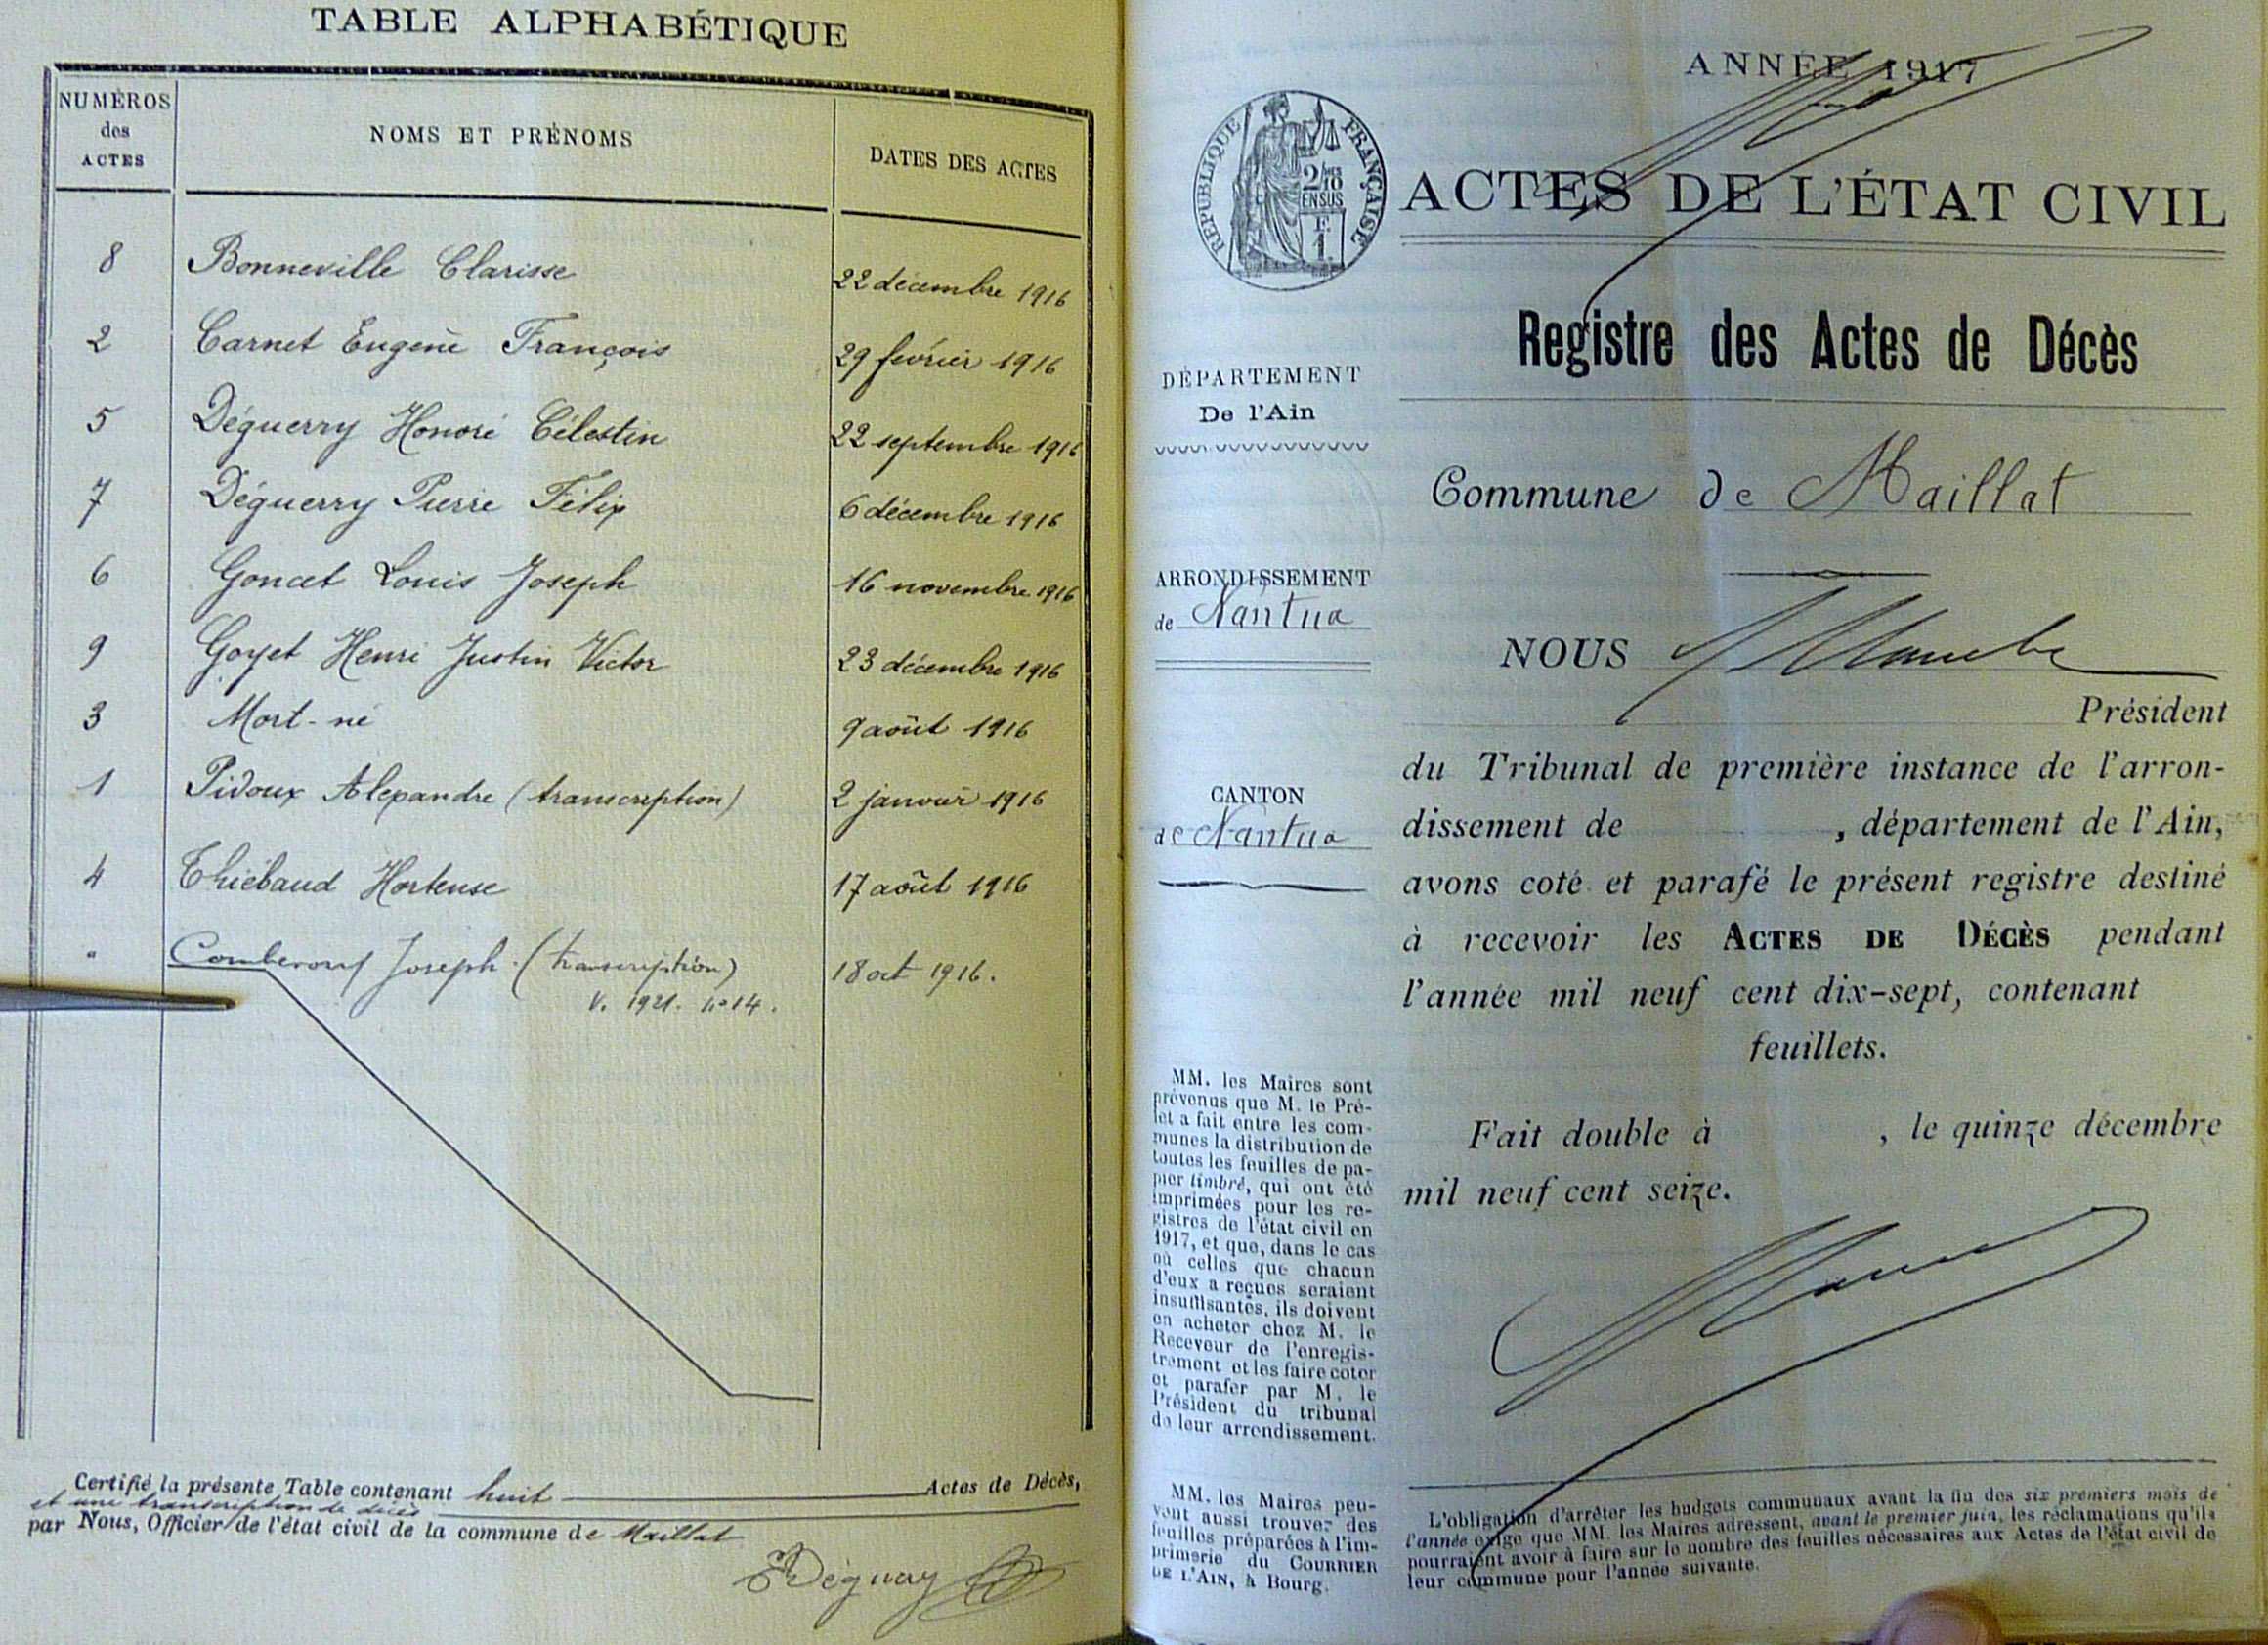 TABLE ALPHABÉTIQUE
NUMÉROS des ACTES
NOMS ET PRÉNOMS
DATES DES ACTES
8 Bonneville Clarisse 22 décembre 1916
2 Carnet Eugène François 29 février 1916
5 Déguerry Honoré Célestin 22 septembre 1916
7 Déguerry Pierre Félix 6 décembre 1916
6 Goncet Louis Joseph 16 novembre 1916
9 Goyet Henri Justin Victor 23 décembre 1916
3 Mort-né 9 août 1916
1 Pidoux Alexandre (transcription) 2 janvier 1916
4 Thiébaud Hortense 17 août 1916
" Joseph. (transcription) 18 oct 1916.
V. 1921. n° 14.
Certifié la présente Table contenant huit Actes de Décès,
et une transcription de décès
par Nous, Officier de l'état civil de la commune de Maillat
ANNÉE 1917
RÉPUBLIQUE FRANÇAISE
2/10
EN SUS
F.
1
ACTES DE L'ÉTAT CIVIL
Registre des Actes de Décès
DÉPARTEMENT
De l'Ain
Commune de Maillat
ARRONDISSEMENT
de Nantua
NOUS
Président
CANTON
de Nantua
du Tribunal de première instance de l'arron-
dissement de , département de l'Ain,
avons coté et parafé le présent registre destiné
à recevoir les ACTES DE DÉCÈS pendant
l'année mil neuf cent dix-sept, contenant
feuillets.
Fait double à , le quinze décembre
mil neuf cent seize.
MM. les Maires sont
prévenus que M. le Pré-
fet a fait entre les com-
munes la distribution de
toutes les feuilles de pa-
pier timbré, qui ont été
imprimées pour les re-
gistres de l'état civil en
1917, et que, dans le cas
où celles que chacun
d'eux a reçues seraient
insuffisantes, ils doivent
en acheter chez M. le
Receveur de l'enregis-
trement et les faire coter
et parafer par M. le
Président du tribunal
de leur arrondissement.
MM. les Maires peu-
vent aussi trouver des
feuilles préparées à l'im-
primerie du COURRIER
DE L'AIN, à Bourg.
L'obligation d'arrêter les budgets communaux avant la fin des six premiers mois de
l'année exige que MM. les Maires adressent, avant le premier juin, les réclamations qu'ils
pourraient avoir à faire sur le nombre des feuilles nécessaires aux Actes de l'état civil de
leur commune pour l'année suivante.